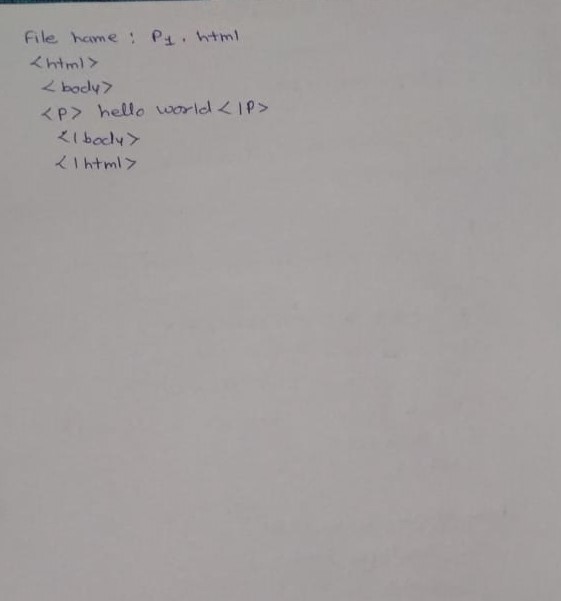 File name : P1 . html
<html>
<body>
<P> hello world </P>
</body>
</html>